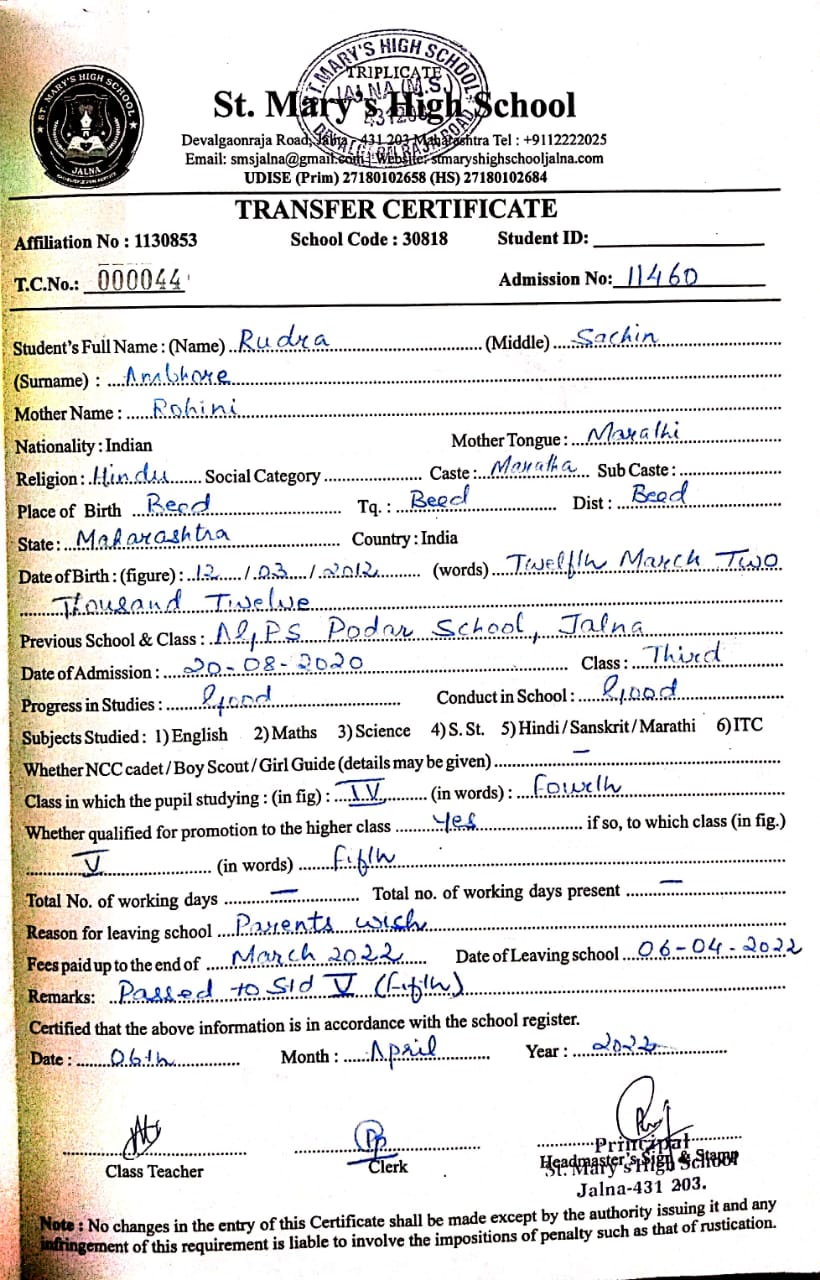 ST. MARY'S HIGH SCHOOL
JALNA
ST. MARY'S HIGH SCHOOL
JALNA (M.S.)
431203
TRIPLICATE
St. Mary's High School
Devalgaonraja Road, Jalna - 431 203 Maharashtra Tel : +9112222025
Email: smsjalna@gmail.com | Website: stmaryshighschooljalna.com
UDISE (Prim) 27180102658 (HS) 27180102684
TRANSFER CERTIFICATE
Affiliation No : 1130853 School Code : 30818 Student ID:
T.C.No.: 000044 Admission No: 11460
Student's Full Name : (Name) Rudra (Middle) Sachin
(Surname) : Ambhore
Mother Name : Rohini
Nationality : Indian Mother Tongue : Marathi
Religion : Hindu Social Category Caste : Maratha Sub Caste :
Place of Birth Beed Tq. : Beed Dist : Beed
State : Maharashtra Country : India
Date of Birth : (figure) : 12 / 03 / 2012 (words) Twelfth March Two
Thousand Twelve
Previous School & Class : Podar School, Jalna
Date of Admission : 20-08-2020 Class : Third
Progress in Studies : Good Conduct in School : Good
Subjects Studied : 1) English 2) Maths 3) Science 4) S. St. 5) Hindi / Sanskrit / Marathi 6) ITC
Whether NCC cadet / Boy Scout / Girl Guide (details may be given) —
Class in which the pupil studying : (in fig) : IV (in words) : Fourth
Whether qualified for promotion to the higher class Yes if so, to which class (in fig.)
V (in words) Fifth
Total No. of working days — Total no. of working days present —
Reason for leaving school Parents wish
Fees paid up to the end of March 2022 Date of Leaving school 06-04-2022
Remarks: Passed to Std V (Fifth)
Certified that the above information is in accordance with the school register.
Date : 06th Month : April Year : 2022
Class Teacher Clerk Headmaster's Sign & Stamp
Principal
St. Mary's High School
Jalna-431 203.
Note : No changes in the entry of this Certificate shall be made except by the authority issuing it and any
infringement of this requirement is liable to involve the impositions of penalty such as that of rustication.